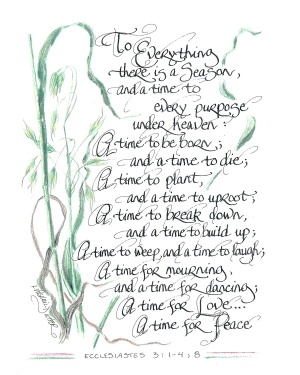 To Everything
there is a Season,
and a time to
every purpose
under heaven:
A time to be born,;
and a time to die;
A time to plant,
and a time to uproot;
A time to break down,
and a time to build up;
A time to weep, and a time to laugh;
A time for mourning,
and a time for dancing;
A time for Love....
A time for Peace
ECCLESIASTES 3:1-4;8